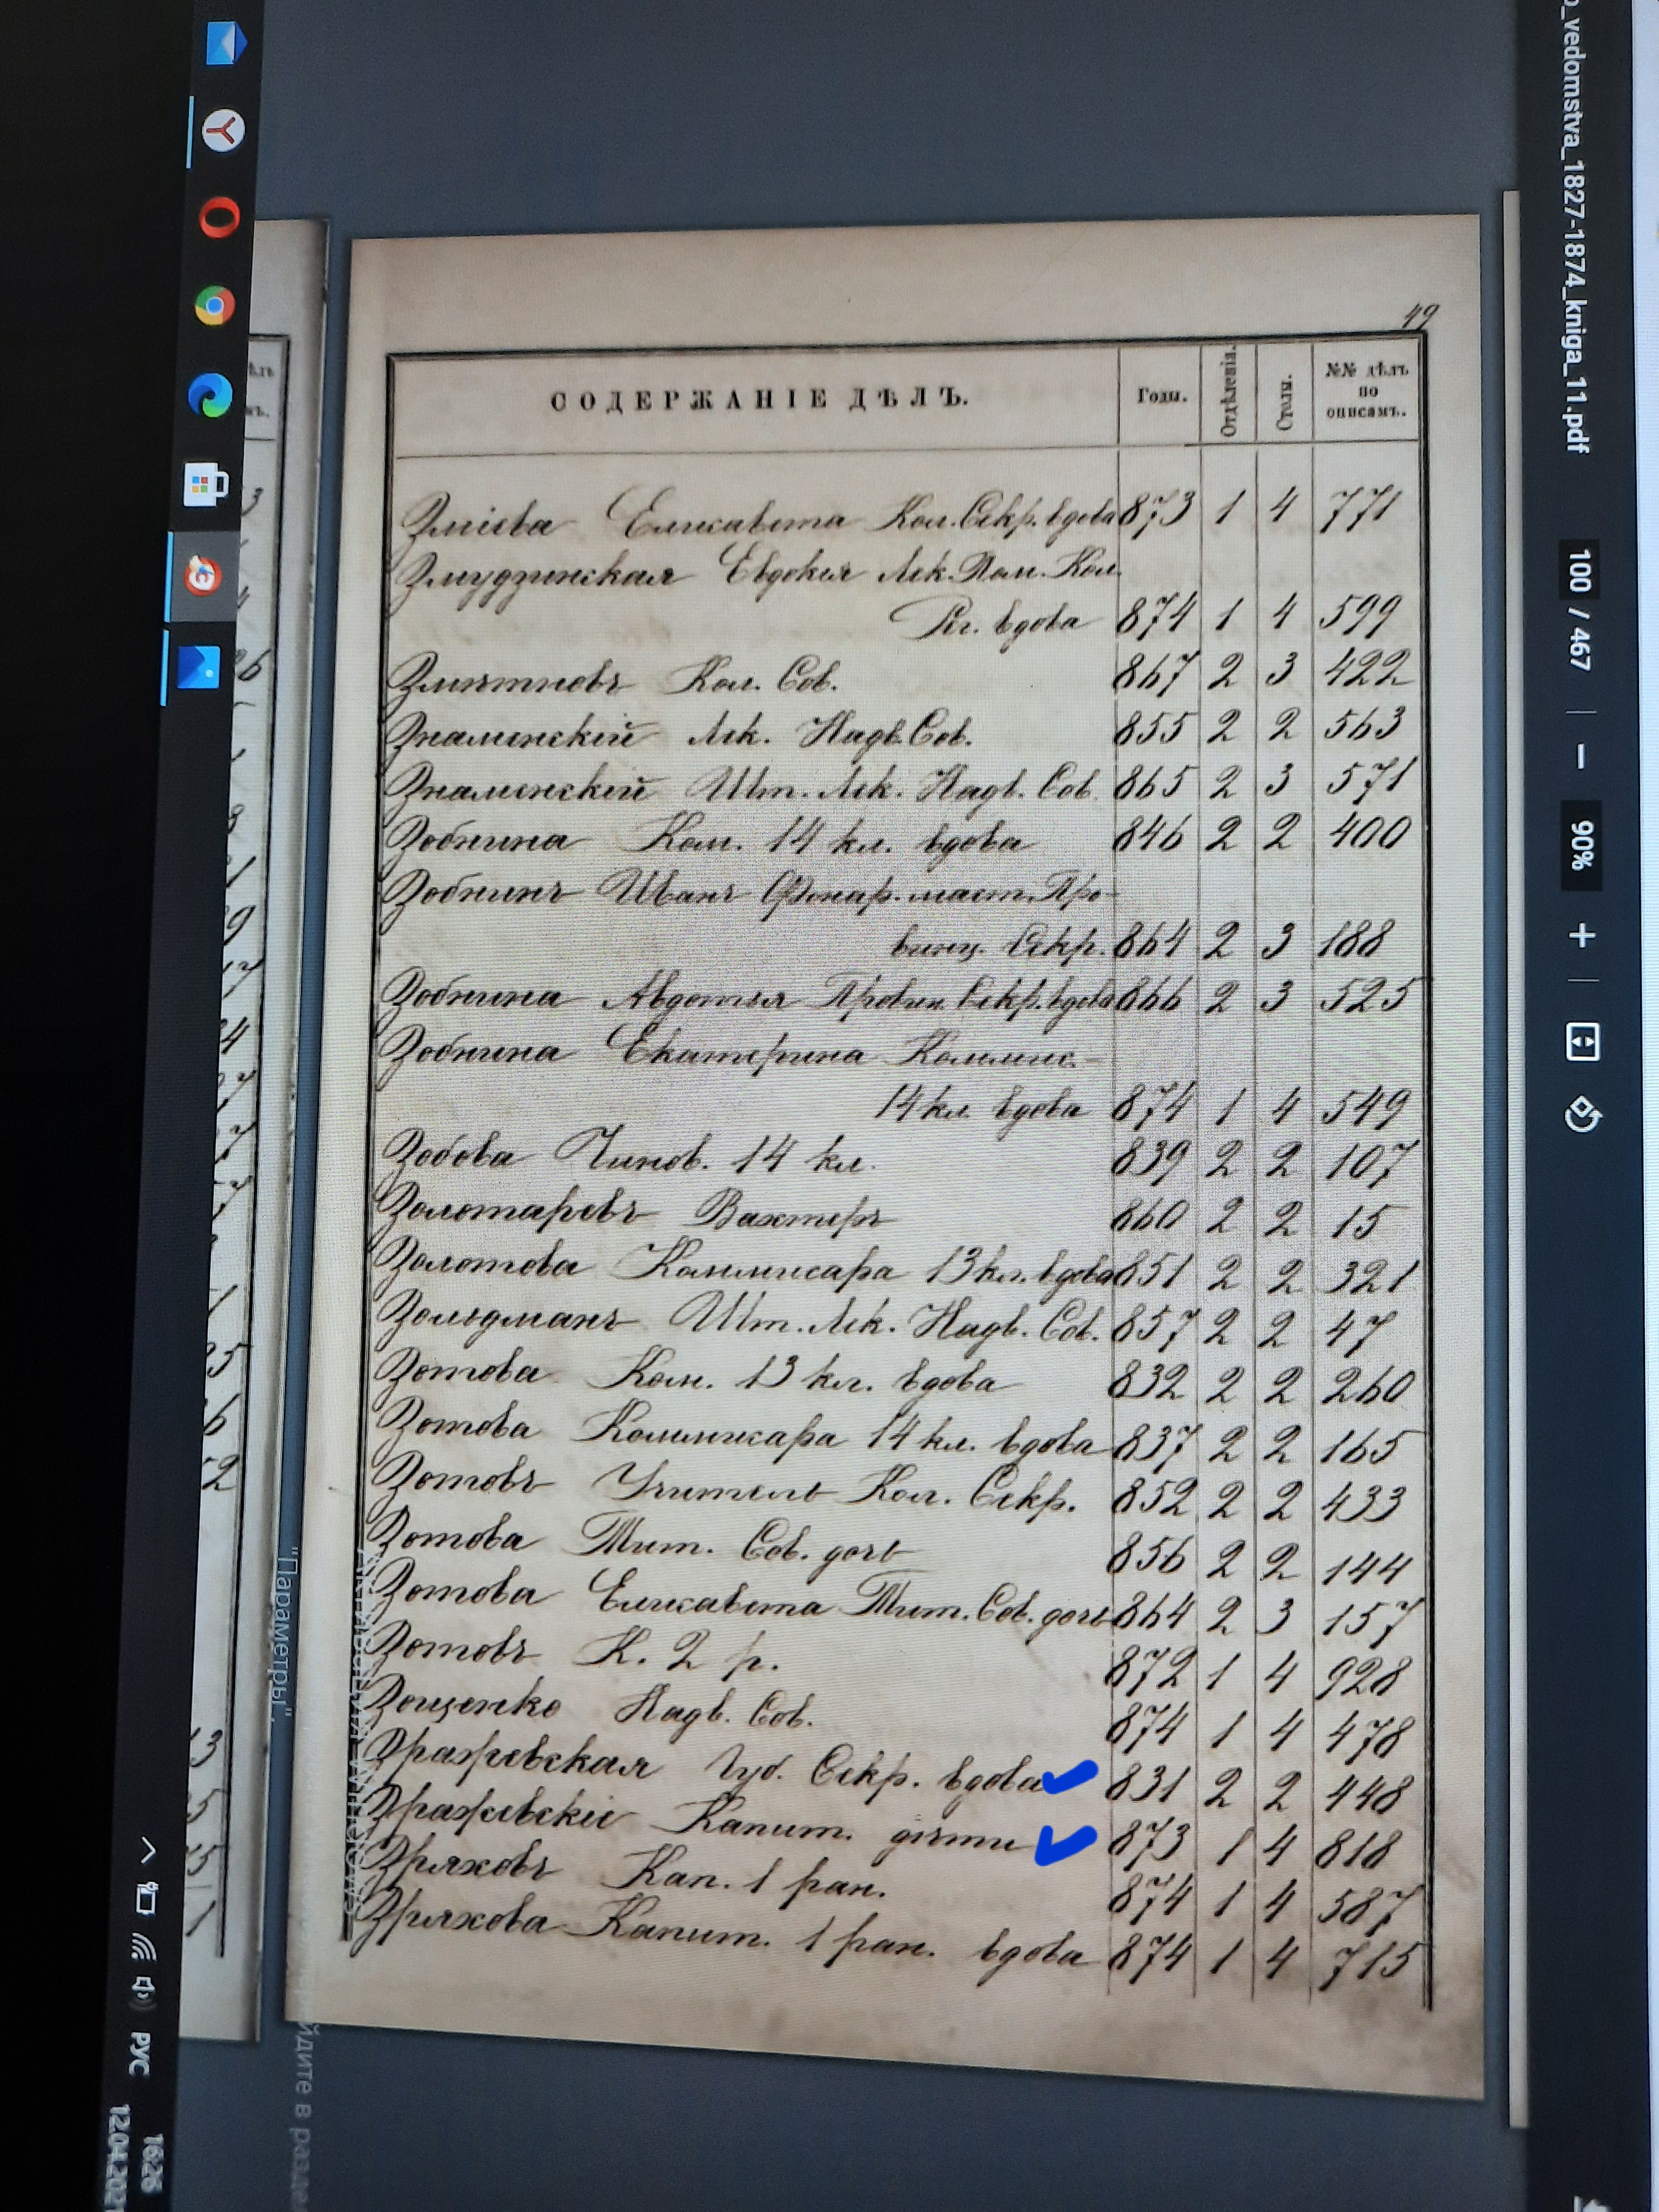 49
СОДЕРЖАНІЕ ДѢЛЪ. Годы. Отдѣленія. Столы. №№ дѣлъ по описамъ.
Зміева Елисавета Кол. Секр. вдова 873 1 4 771
Змудзинская Евдокія Лек. Пом. Кол.
Рег. вдова 874 1 4 599
Кол. Сов. 867 2 3 422
Знаменскій Лек. Надв. Сов. 855 2 2 563
Знаменскій Шт. Лек. Надв. Сов. 865 2 3 571
Зобнина Ком. 14 кл. вдова 846 2 2 400
Зобнинъ Иванъ Фонар. маст. Про-
винц. Секр. 864 2 3 188
Зобнина Авдотья Провин. Секр. вдова 866 2 3 525
Зобнина Екатерина Коммис.-
14 кл. вдова 874 1 4 549
Зобова Чинов. 14 кл. 839 2 2 107
Золотаревъ Вахтеръ 860 2 2 15
Золотова Коммисара 13 кл. вдова 851 2 2 321
Зольдманъ Шт. Лек. Надв. Сов. 857 2 2 47
Зотова Ком. 13 кл. вдова 832 2 2 260
Зотова Коммисара 14 кл. вдова 837 2 2 165
Зотовъ Учитель Кол. Секр. 852 2 2 433
Зотова Тит. Сов. дочь 856 2 2 144
Зотова Елисавета Тит. Сов. дочь 864 2 3 157
Зотовъ К. 2 р. 872 1 4 928
Зощенко Надв. Сов. 874 1 4 478
Зражевская Губ. Секр. вдова 831 2 2 448
Зражевскіе Капит. дѣти 873 1 4 818
Зряховъ Кап. 1 ран. 874 1 4 587
Зряхова Капит. 1 ран. вдова 874 1 4 715
_vedomstva_1827-1874_kniga_11.pdf
100 / 467
90%
"Параметры".
РУС
16:26